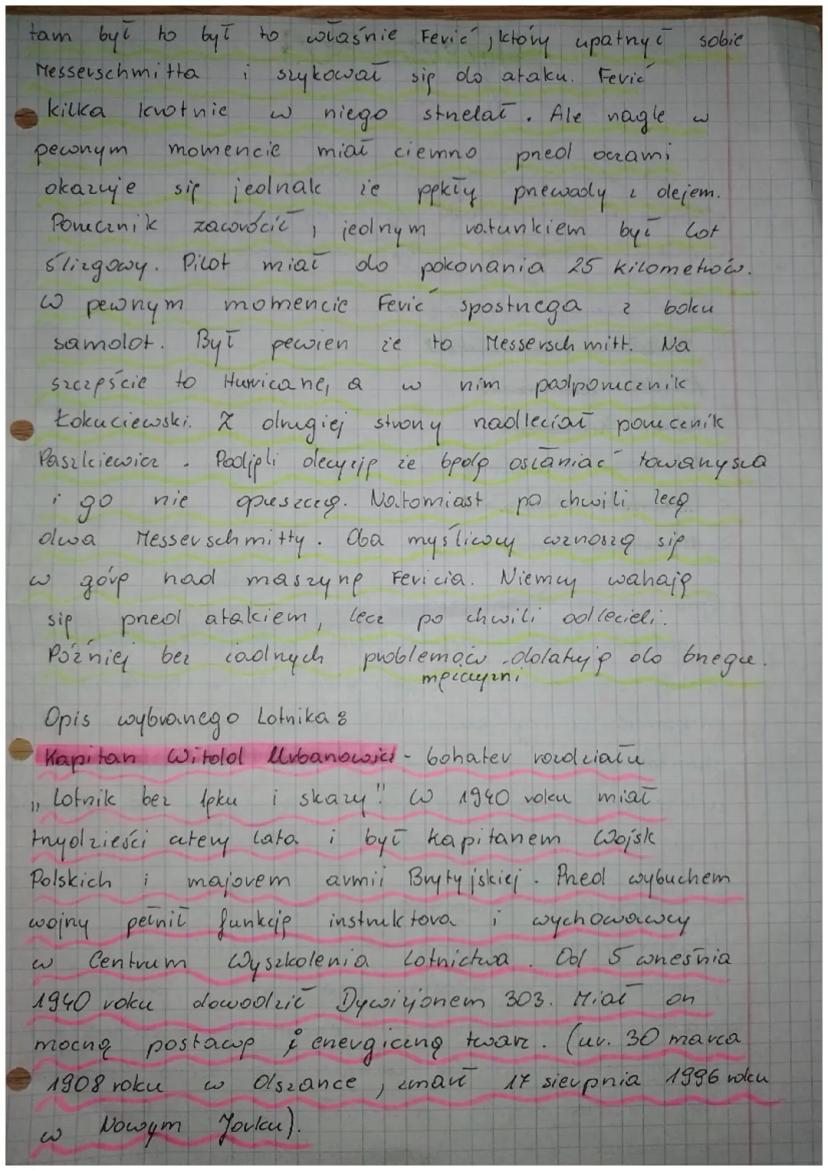 tam był to był to właśnie Ferić, który upatrzył sobie
Messerschmitta i szykował się do ataku. Ferić
kilka krotnie w niego strzelał. Ale nagle w
pewnym momencie miał ciemno przed oczami
okazuje się jednak że pękły przewody z olejem.
Porucznik zawrócił, jedynym ratunkiem był lot
ślizgowy. Pilot miał do pokonania 25 kilometrów.
W pewnym momencie Ferić spostrzega z boku
samolot. Był pewien że to Messerschmitt. Na
szczęście to Hurricane, a w nim podporucznik
Łokuciewski. Z drugiej strony nadleciał porucznik
Paszkiewicz. Podjęli decyzję że będą osłaniać towarzysza
i go nie opuszczą. Natomiast po chwili lecą
dwa Messerschmitty. Oba myśliwcy wznoszą się
w górę nad maszynę Fericia. Niemcy wahają
się przed atakiem, lecz po chwili odlecieli.
Później bez żadnych problemów dolatują do brzegu.
mężczyzni
Opis wybranego Lotnika:
Kapitan Witold Urbanowicz - bohater rozdziału
„Lotnik bez lęku i skazy". W 1940 roku miał
trzydzieści cztery lata i był kapitanem Wojsk
Polskich i majorem armii Brytyjskiej. Przed wybuchem
wojny pełnił funkcję instruktora i wychowawcy
w Centrum Wyszkolenia Lotnictwa. Od 5 września
1940 roku dowodził Dywizjonem 303. Miał on
mocną postawę i energiczną twarz. (ur. 30 marca
1908 roku w Olszance, zmarł 17 sierpnia 1996 roku
w Nowym Jorku).